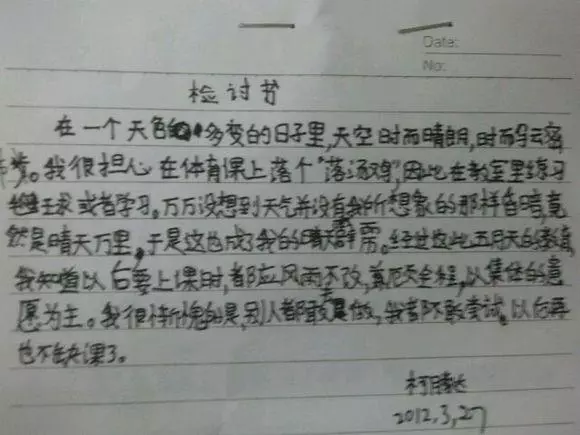 Date:
No:
检讨书
在一个天色多变的日子里,天空时而晴朗,时而乌云密
布。我很担心在体育课上落个“落汤鸡”,因此在教室里练习
球或者学习。万万没想到天气并没有我所想象的那样昏暗,竟
然是晴天万里,于是这也成了我的晴天霹雳。经过这此五月天的教育,
我知道以后要上课时,都应风雨不改,完全程,以集体的意
愿为主。我很惭愧的是,别人都敢做,我都不敢尝试。以后再
也不缺课了。
柯腾达
2012.3,27